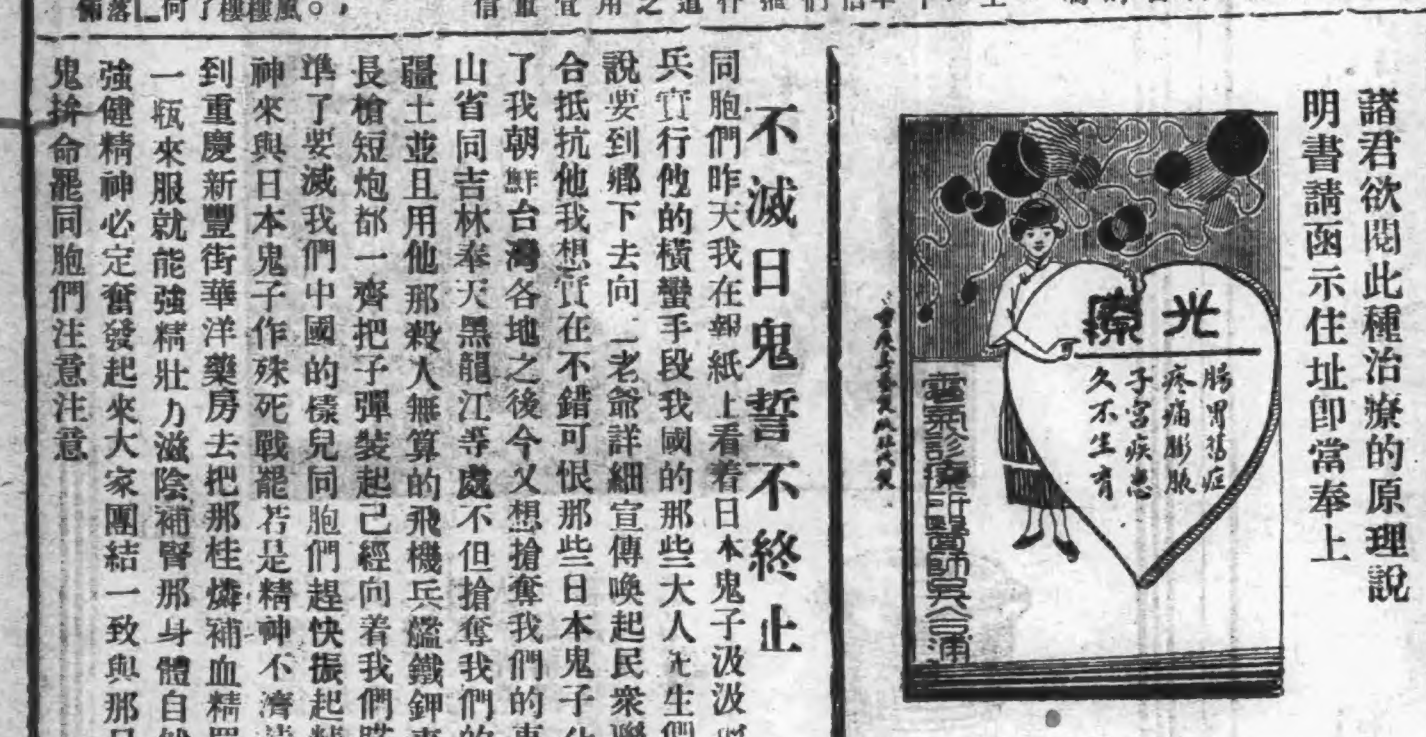 諸君欲閱此種治療的原理說
明書請函示住址卽當奉上
光療
腸胃舊症
疼痛膨脹
子宮疾患
久不生育
電氣診療所醫師吳
不滅日鬼誓不終止
同胞們昨天我在報紙上看着日本鬼子汲汲
兵實行他的橫蠻手段我國的那些大人先生們
說要到鄉下去向二老爺詳細宣傳喚起民衆聯
合抵抗他我想實在不錯可恨那些日本鬼子
了我朝鮮台灣各地之後今又想搶奪我們的東
山省同吉林奉天黑龍江等處不但搶奪我們的
疆土並且用他那殺人無算的飛機兵艦鐵鉀
長槍短炮都一齊把子彈裝起已經向着我們瞄
準了要滅我們中國的樣兒同胞們趕快振起精
神來與日本鬼子作殊死戰罷若是精神不濟請
到重慶新豐街華洋藥房去把那桂燐補血精買
一瓶來服就能強精壯力滋陰補腎那身體自然
強健精神必定奮發起來大家團結一致與那日
鬼拚命罷同胞們注意注意
何了樓樓風。